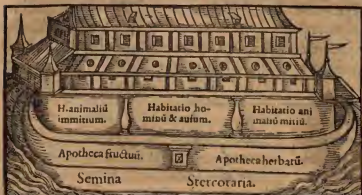 H. animaliũ
immitium.
Habitatio ho-
minũ & auium.
Habitatio ani
maliũ mitiũ.
Apotheca fructuũ.
Apotheca herbarũ.
Semina
Stercoraria.